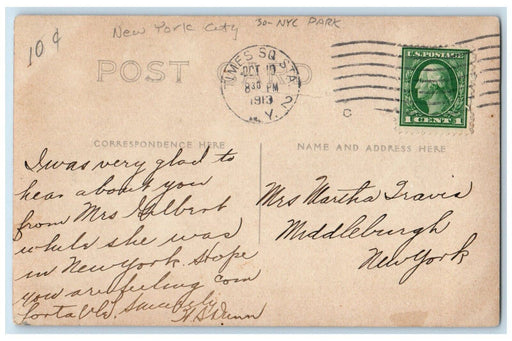 10¢
New York City 30-NYC PARK
POST CARD
TIMES SQ. STA.
OCT 10
830 PM
1913
N.Y. 2
C
U.S. POSTAGE
1 CENT 1
CORRESPONDENCE HERE
NAME AND ADDRESS HERE
I was very glad to
hear about you
from Mrs Gilbert
while she was
in New York. Hope
you are feeling com
fortable. Sincerely
Mrs Martha Travis
Middleburgh
New York